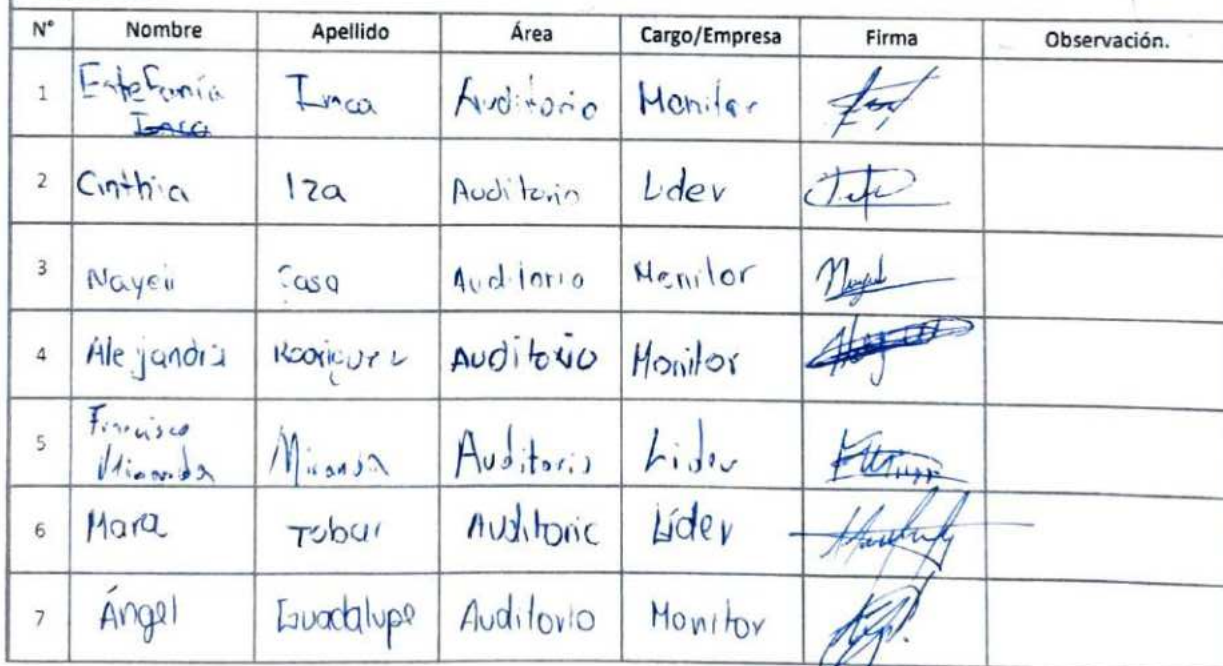 N° Nombre Apellido Área Cargo/Empresa Firma Observación.
1 Estefanía Inca Auditorio Monitor
Inca
2 Cinthia Iza Auditorio Lider
3 Nayeli Casa Auditorio Monitor
4 Alejandra Rodriguez Auditorio Monitor
5 Francisco Miranda Auditorio Lider
Miranda
6 Mara Tobar Auditorio Líder
7 Ángel Guadalupe Auditorio Monitor